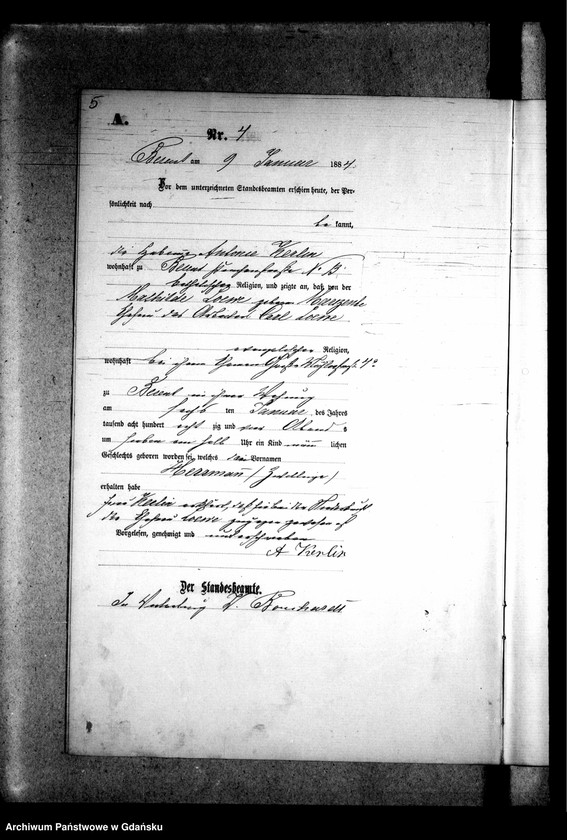 5
A.
Nr. 4
Berent am 9 Januar 1884.
Vor dem unterzeichneten Standesbeamten erschien heute, der Per-
sönlichkeit nach
be kannt,
die Hebamme Antonie Kerlin
wohnhaft zu Berent
katholischer Religion, und zeigte an, daß von der
Mathilde Loewe geborne
Ehefrau des Arbeiters Carl Loewe
evangelischer Religion,
wohnhaft bei ihrem
zu Berent in ihrer Wohnung
am sechs ten Januar des Jahres
tausend acht hundert acht zig und vier Abends
um sieben ein halb Uhr ein Kind männ lichen
Geschlechts geboren worden sei, welches den Vornamen
Herrmann
erhalten habe
Frau Kerlin erklärt, daß sie bei der Niederkunft
der Ehefrau Loewe zugegen gewesen ist
Vorgelesen, genehmigt und unterschrieben
A Kerlin
Der Standesbeamte.
In Vertretung
Archiwum Państwowe w Gdańsku